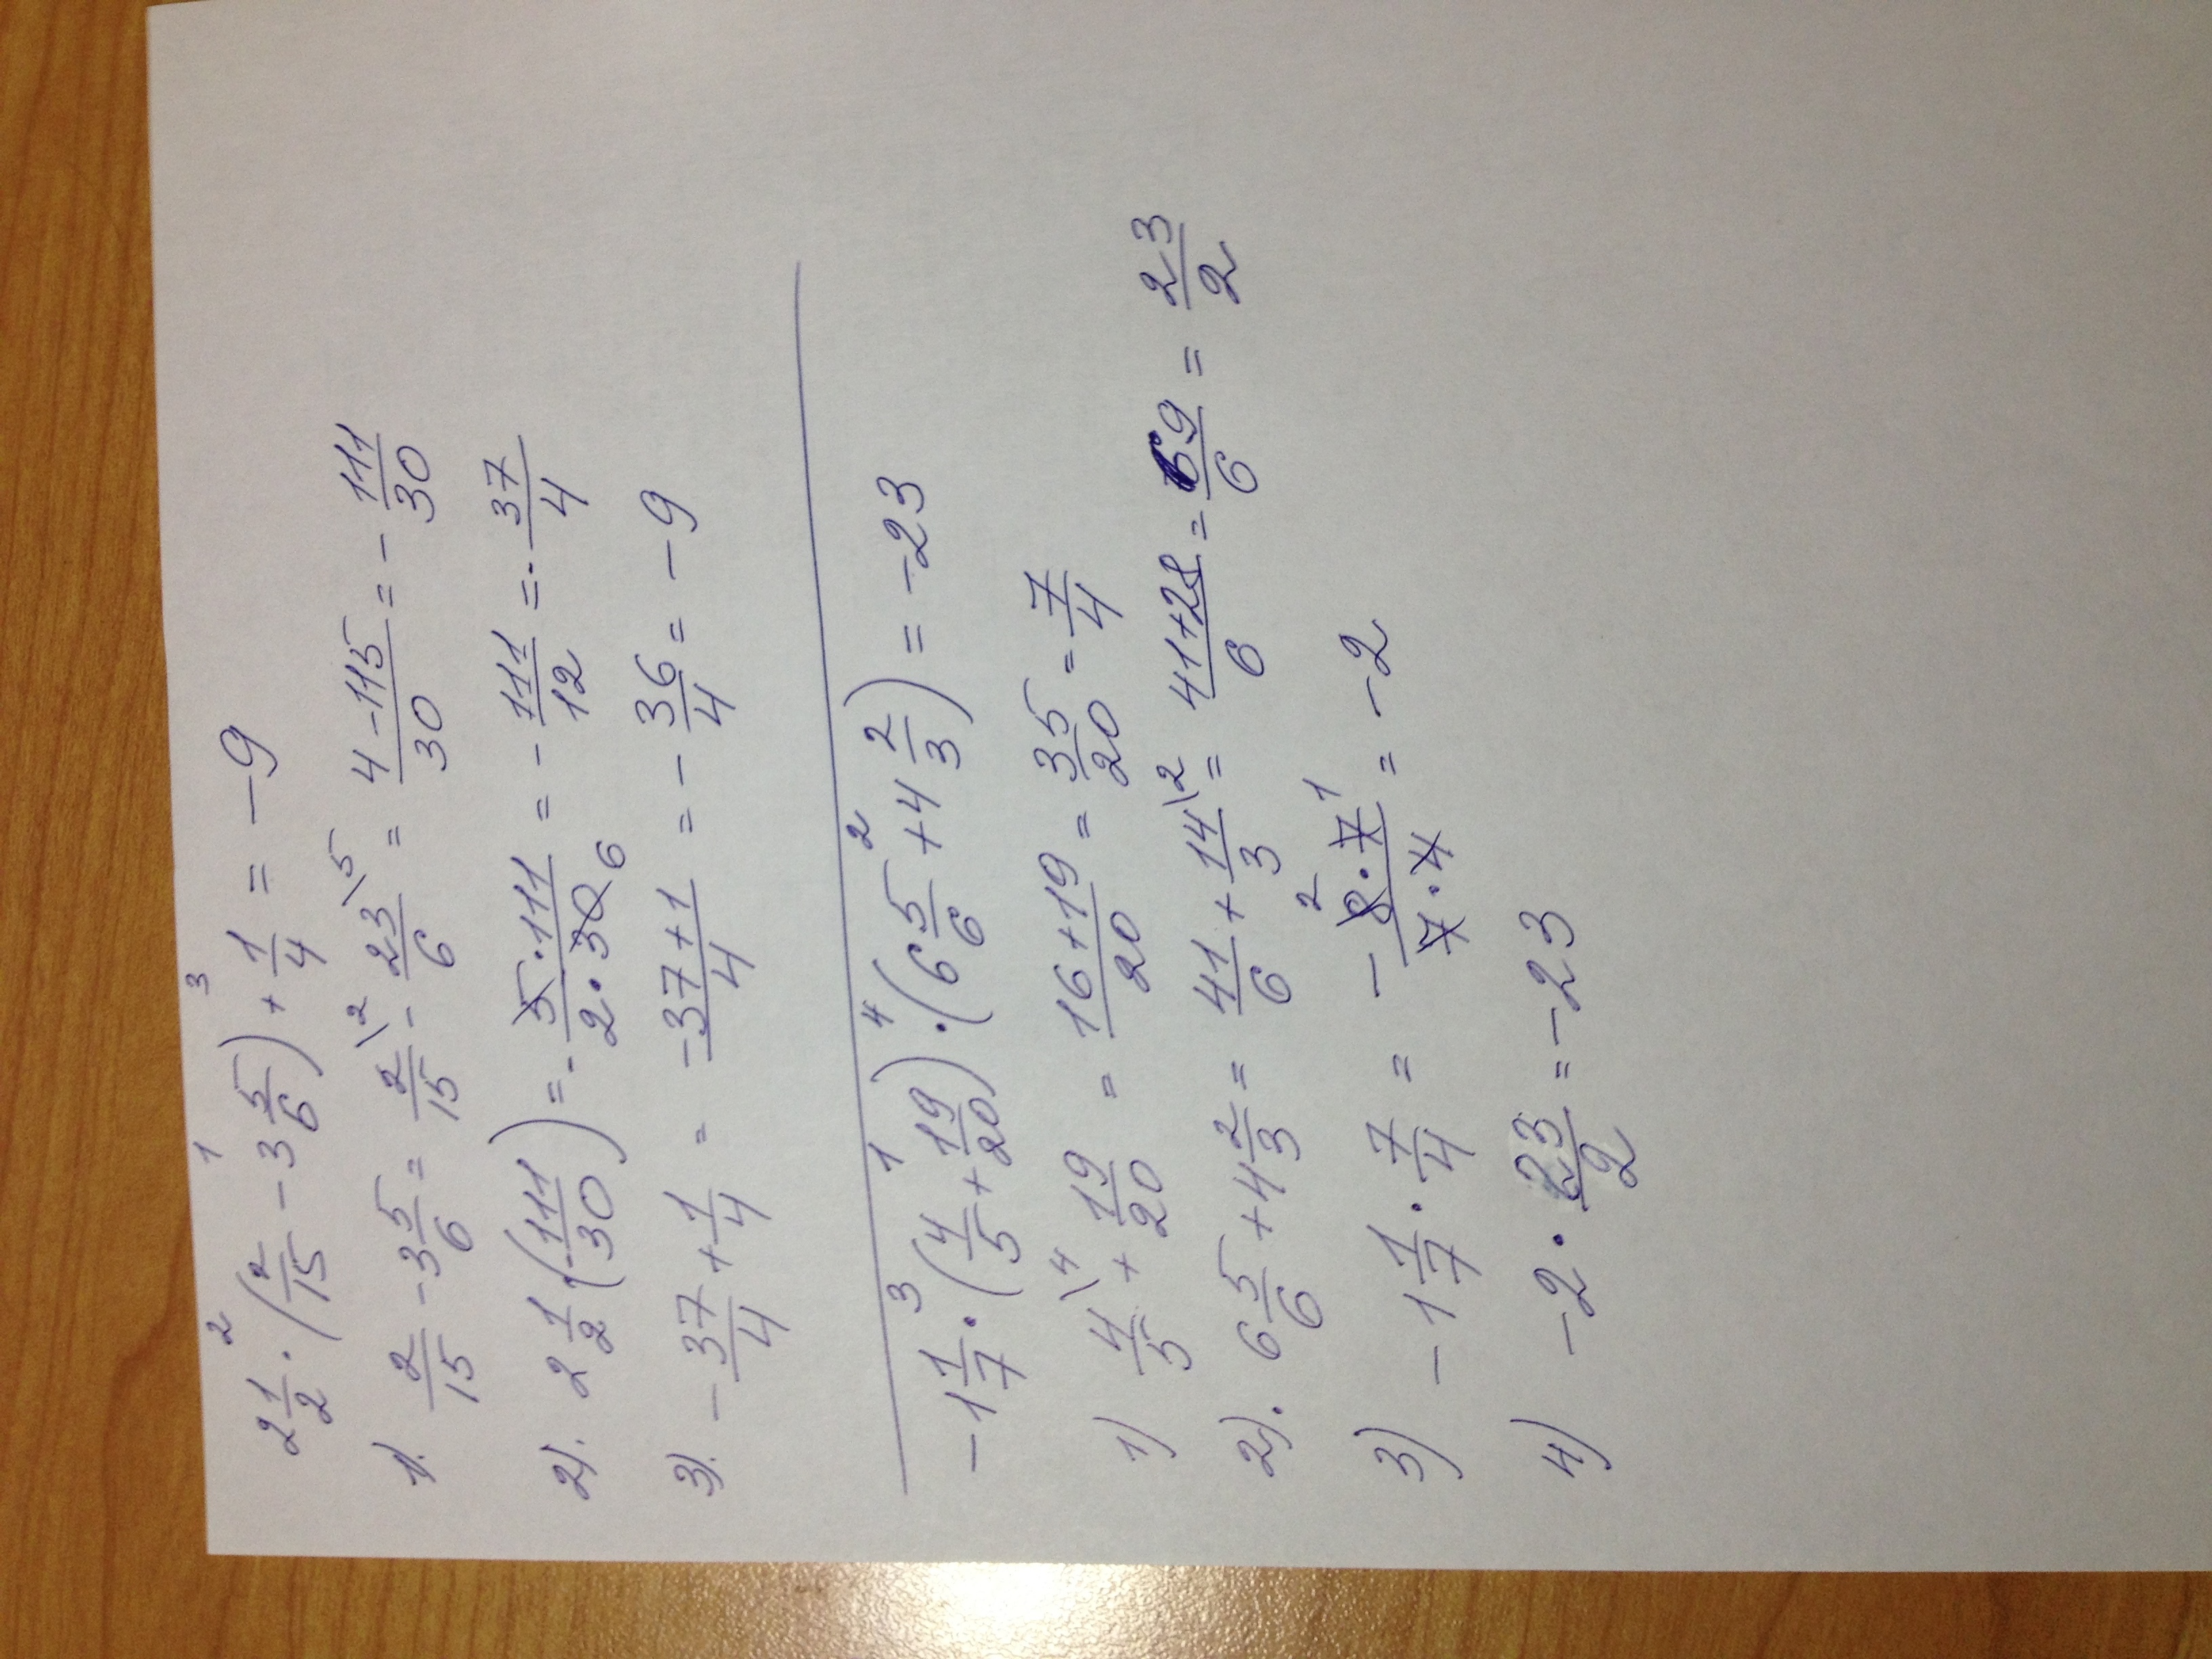 2 1/2 · (2/15 - 3 5/6) + 1/4 = -9
1). 2/15 - 3 5/6 = 2/15 \2 - 23/6 \5 = (4-115)/30 = - 111/30
2). 2 1/2 · (-111/30) = - (5·111)/(2·30) 6 = - 111/12 = - 37/4
3). - 37/4 + 1/4 = (-37+1)/4 = - 36/4 = -9
-1 1/7 · (4/5 + 19/20) · (6 5/6 + 4 2/3) = -23
1) 4/5 \4 + 19/20 = (16+19)/20 = 35/20 = 7/4
2). 6 5/6 + 4 2/3 = 41/6 + 14/3 \2 = (41+28)/6 = 69/6 = 23/2
3) -1 1/7 · 7/4 = - (8·7)/(7·4) = -2
4) -2 · 23/2 = -23